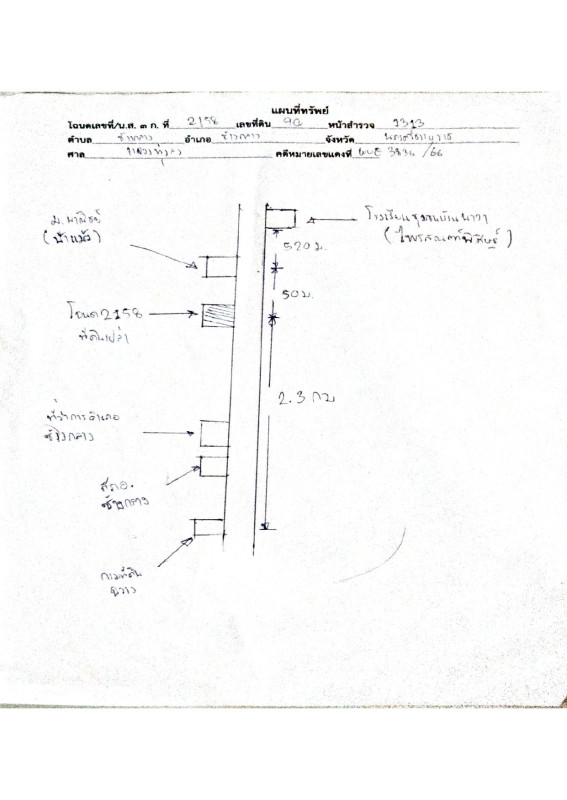 แผนที่ทรัพย์
โฉนดเลขที่/น.ส. ๓ ก. ที่ 2158 เลขที่ดิน 90 หน้าสำรวจ 1313
ตำบล ช้างกลาง อำเภอ ช้างกลาง จังหวัด นครศรีธรรมราช
ศาล คดีหมายเลขแดงที่ ผบE 3834 /66
ม.พาณิชย์
โรงเรียนชุมชนบ้าน
520 ม.
50 ม.
โฉนด 2158
ที่ดินเปล่า
2.3 กม
ที่ว่าการอำเภอ
ช้างกลาง
สภอ.
ช้างกลาง